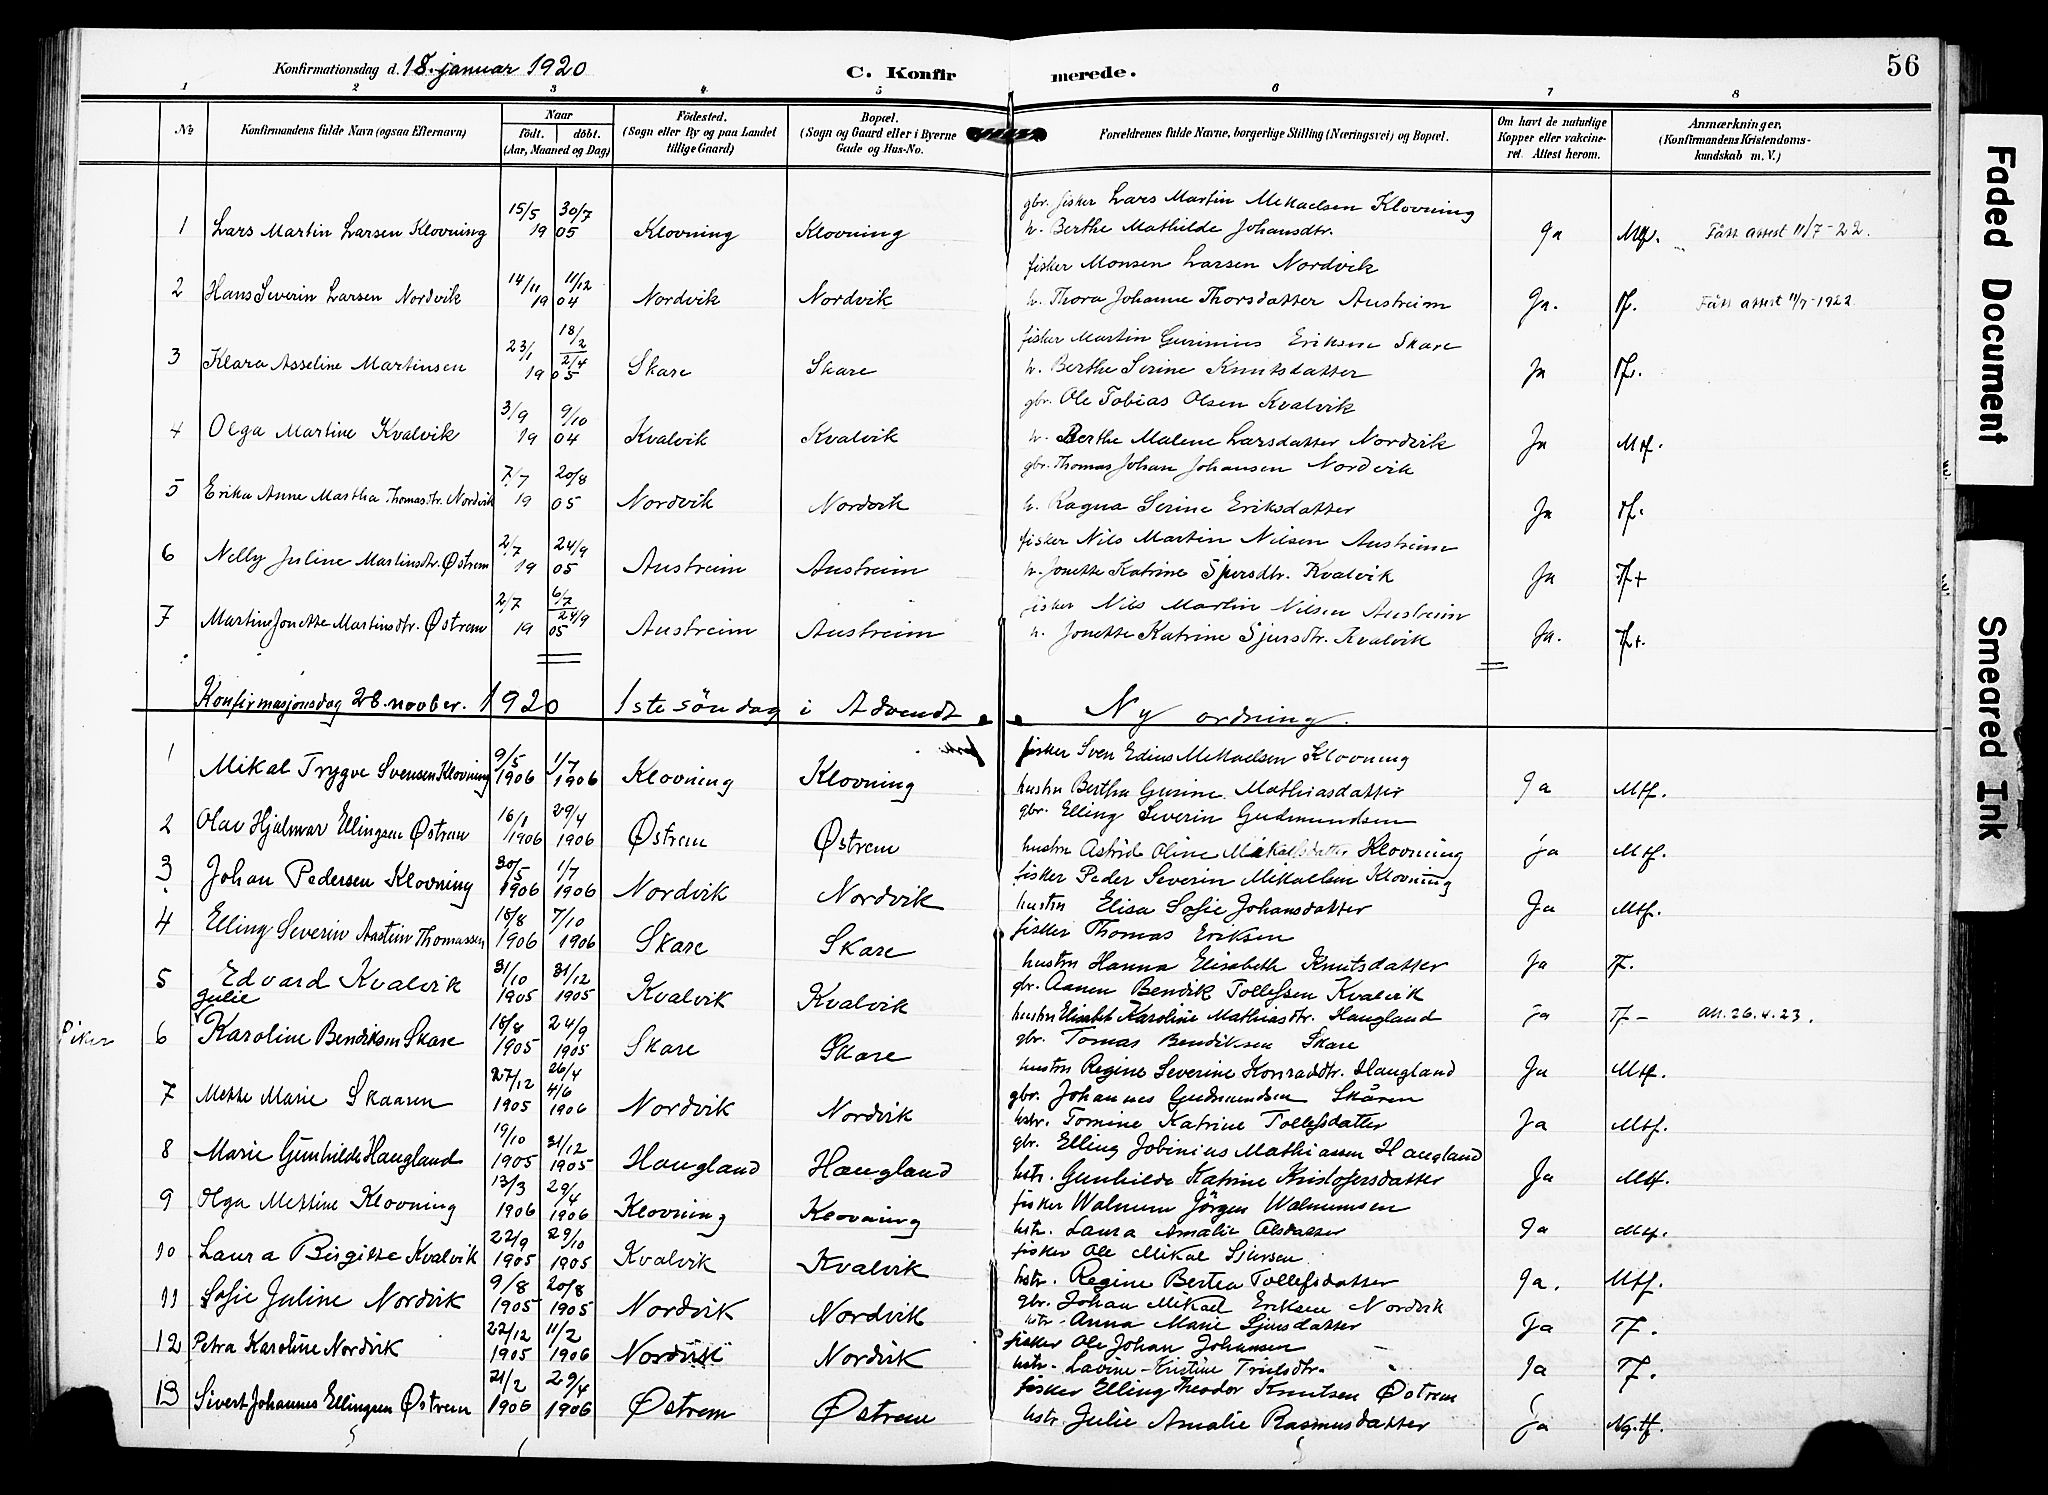 56
Konfirmationsdag d. 18. januar 1920 C. Konfirmerede.
1 2 3 4 5 6 7 8
No Konfirmandens fulde Navn (ogsaa Efternavn) Naar født. døbt. (Aar, Maaned og Dag) Fødested. (Sogn eller By og paa Landet tillige Gaard) Bopæl. (Sogn og Gaard eller i Byerne Gade og Hus-No. Foreldrenes fulde Navne, borgerlige Stilling (Næringsvei) og Bopæl. Om havt de naturlige Kopper eller vakcineret. Attest herom. Anmærkninger. (Konfirmandens Kristendomskundskab m. V.)
gbr. fisker Lars Martin Mikaelsen Klovning
1 Lars Martin Larsen Klovning 15/5 1905 30/7 05 Klovning Klovning h. Berthe Mathilde Johansdtr. Ja Mtf. Fått attest 11/7-22.
fisker Monsen Larsen Nordvik
2 Hans Severin Larsen Nordvik 14/11 1904 11/12 04 Nordvik Nordvik h. Thora Johanne Thorsdatter Austreim Ja. Tf. Fått attest 11/7-1922
fisker Martin Eriksen Skare
3 Klara Asseline Martinsen 23/1 1905 18/2 2/4 05 Skare Skare h. Berthe Serine Knutsdatter Ja Tf.
gbr. Ole Tobias Olsen Kvalvik
4 Olga Martine Kvalvik 3/9 1904 9/10 04 Kvalvik Kvalvik h. Berthe Malene Larsdatter Nordvik Ja Mtf.
gbr. Thomas Johan Johansen Nordvik
5 Erika Anne Martha Thomasdtr. Nordvik 7/7 1905 20/8 05 Nordvik Nordvik h. Ragna Serine Eriksdatter Ja Tf.
fisker Nils Martin Nilsen Austreim
6 Nelly Juline Martinsdtr. Østrem 2/7 1905 24/9 05 Austreim Austreim h. Jonette Katrine Sjursdtr. Kvalvik Ja Tf+
fisker Nils Martin Nilsen Austreim
7 Martine Jonette Martinsdtr. Østrem 2/7 1905 6/7 24/9 05 Austreim Austreim h. Jonette Katrine Sjursdtr. Kvalvik Ja. Tf+.
Konfirmasjonsdag 28. novber. 1920 1ste söndag i Advendt. Ny ordning.
fisker Sven Edius Mikaelsen Klovning
1 Mikal Trygve Svensen Klovning 9/5 1906 1/7 1906 Klovning Klovning hustru Bertha Gurine Mathiasdatter Ja Mtf.
gbr. Elling Severin Gudmundsen
2 Olav Hjalmar Ellingsen Østrem 16/1 1906 29/4 1906 Østrem Østrem hustru Astrid Oline Mikalsdatter Klovning ja Mtf.
fisker Peder Severin Mikaelsen Klovning
3 Johan Pedersen Klovning 30/5 1906 1/7 1906 Nordvik Nordvik hustru Elisa Sofie Johansdatter Ja Mtf.
fisker Thomas Eriksen
4 Elling Severin Thomassen 18/8 1906 7/10 1906 Skare Skare hustru Hanna Elisabeth Knutsdatter ja Tf.
gbr. Aanen Bendik Tollefsen Kvalvik
5 Edvard Kvalvik 31/10 1905 31/12 1905 Kvalvik Kvalvik hustru Elisabet Karoline Mathiasdtr. Haugland ja Tf- att. 26.4.23.
gbr. Tomas Bendiksen Skare
Piker 6 Julie Karoline Bendiksen Skare 18/8 1905 24/9 1905 Skare Skare hustru Regine Severine Konraddtr. Haugland Ja Mtf.
gbr. Johannes Gudmundsen Skåren
7 Mette Marie Skaaren 27/12 1905 26/4 4/6 1906 Nordvik Nordvik hstr. Tomine Katrine Tollefsdatter Ja Mtf.
gbr. Elling Jobinius Mathiassen Haugland
8 Marie Gunhilde Haugland 19/10 1905 31/12 1905 Haugland Haugland hstr. Gunhilde Katrine Kristofersdatter Ja Mtf.
fisker Walmum Jörgen Walmumsen
9 Olga Mettine Klovning 13/3 1906 29/4 1906 Klovning Klovning hstr. Laura Amalie Olsdatter Ja Mtf.
fisker Ole Mikal Sjursen
10 Laura Birgitte Kvalvik 22/9 1905 29/10 1905 Kvalvik Kvalvik hstr. Regine Bertea Tollefsdatter Ja. Mtf.
gbr. Johan Mikael Eriksen Nordvik
11 Sofie Juline Nordvik 9/8 1905 20/8 1905 Nordvik Nordvik hstr. Anna Marie Sjursdatter Ja Tf.
fisker Ole Johan Johansen
12 Petra Karoline Nordvik 22/12 1905 11/2 1906 Nordvik Nordvik hstr. Lavine Kristine Ja Tf.
fisker Elling Theodor Knutsen Østrem
13 Sivert Johannes Ellingsen Østrem 21/2 1906 29/4 1906 Østrem Østrem hstr. Julie Amalie Rasmusdatter Ja Ng.tf.
Faded Document
Smeared Ink